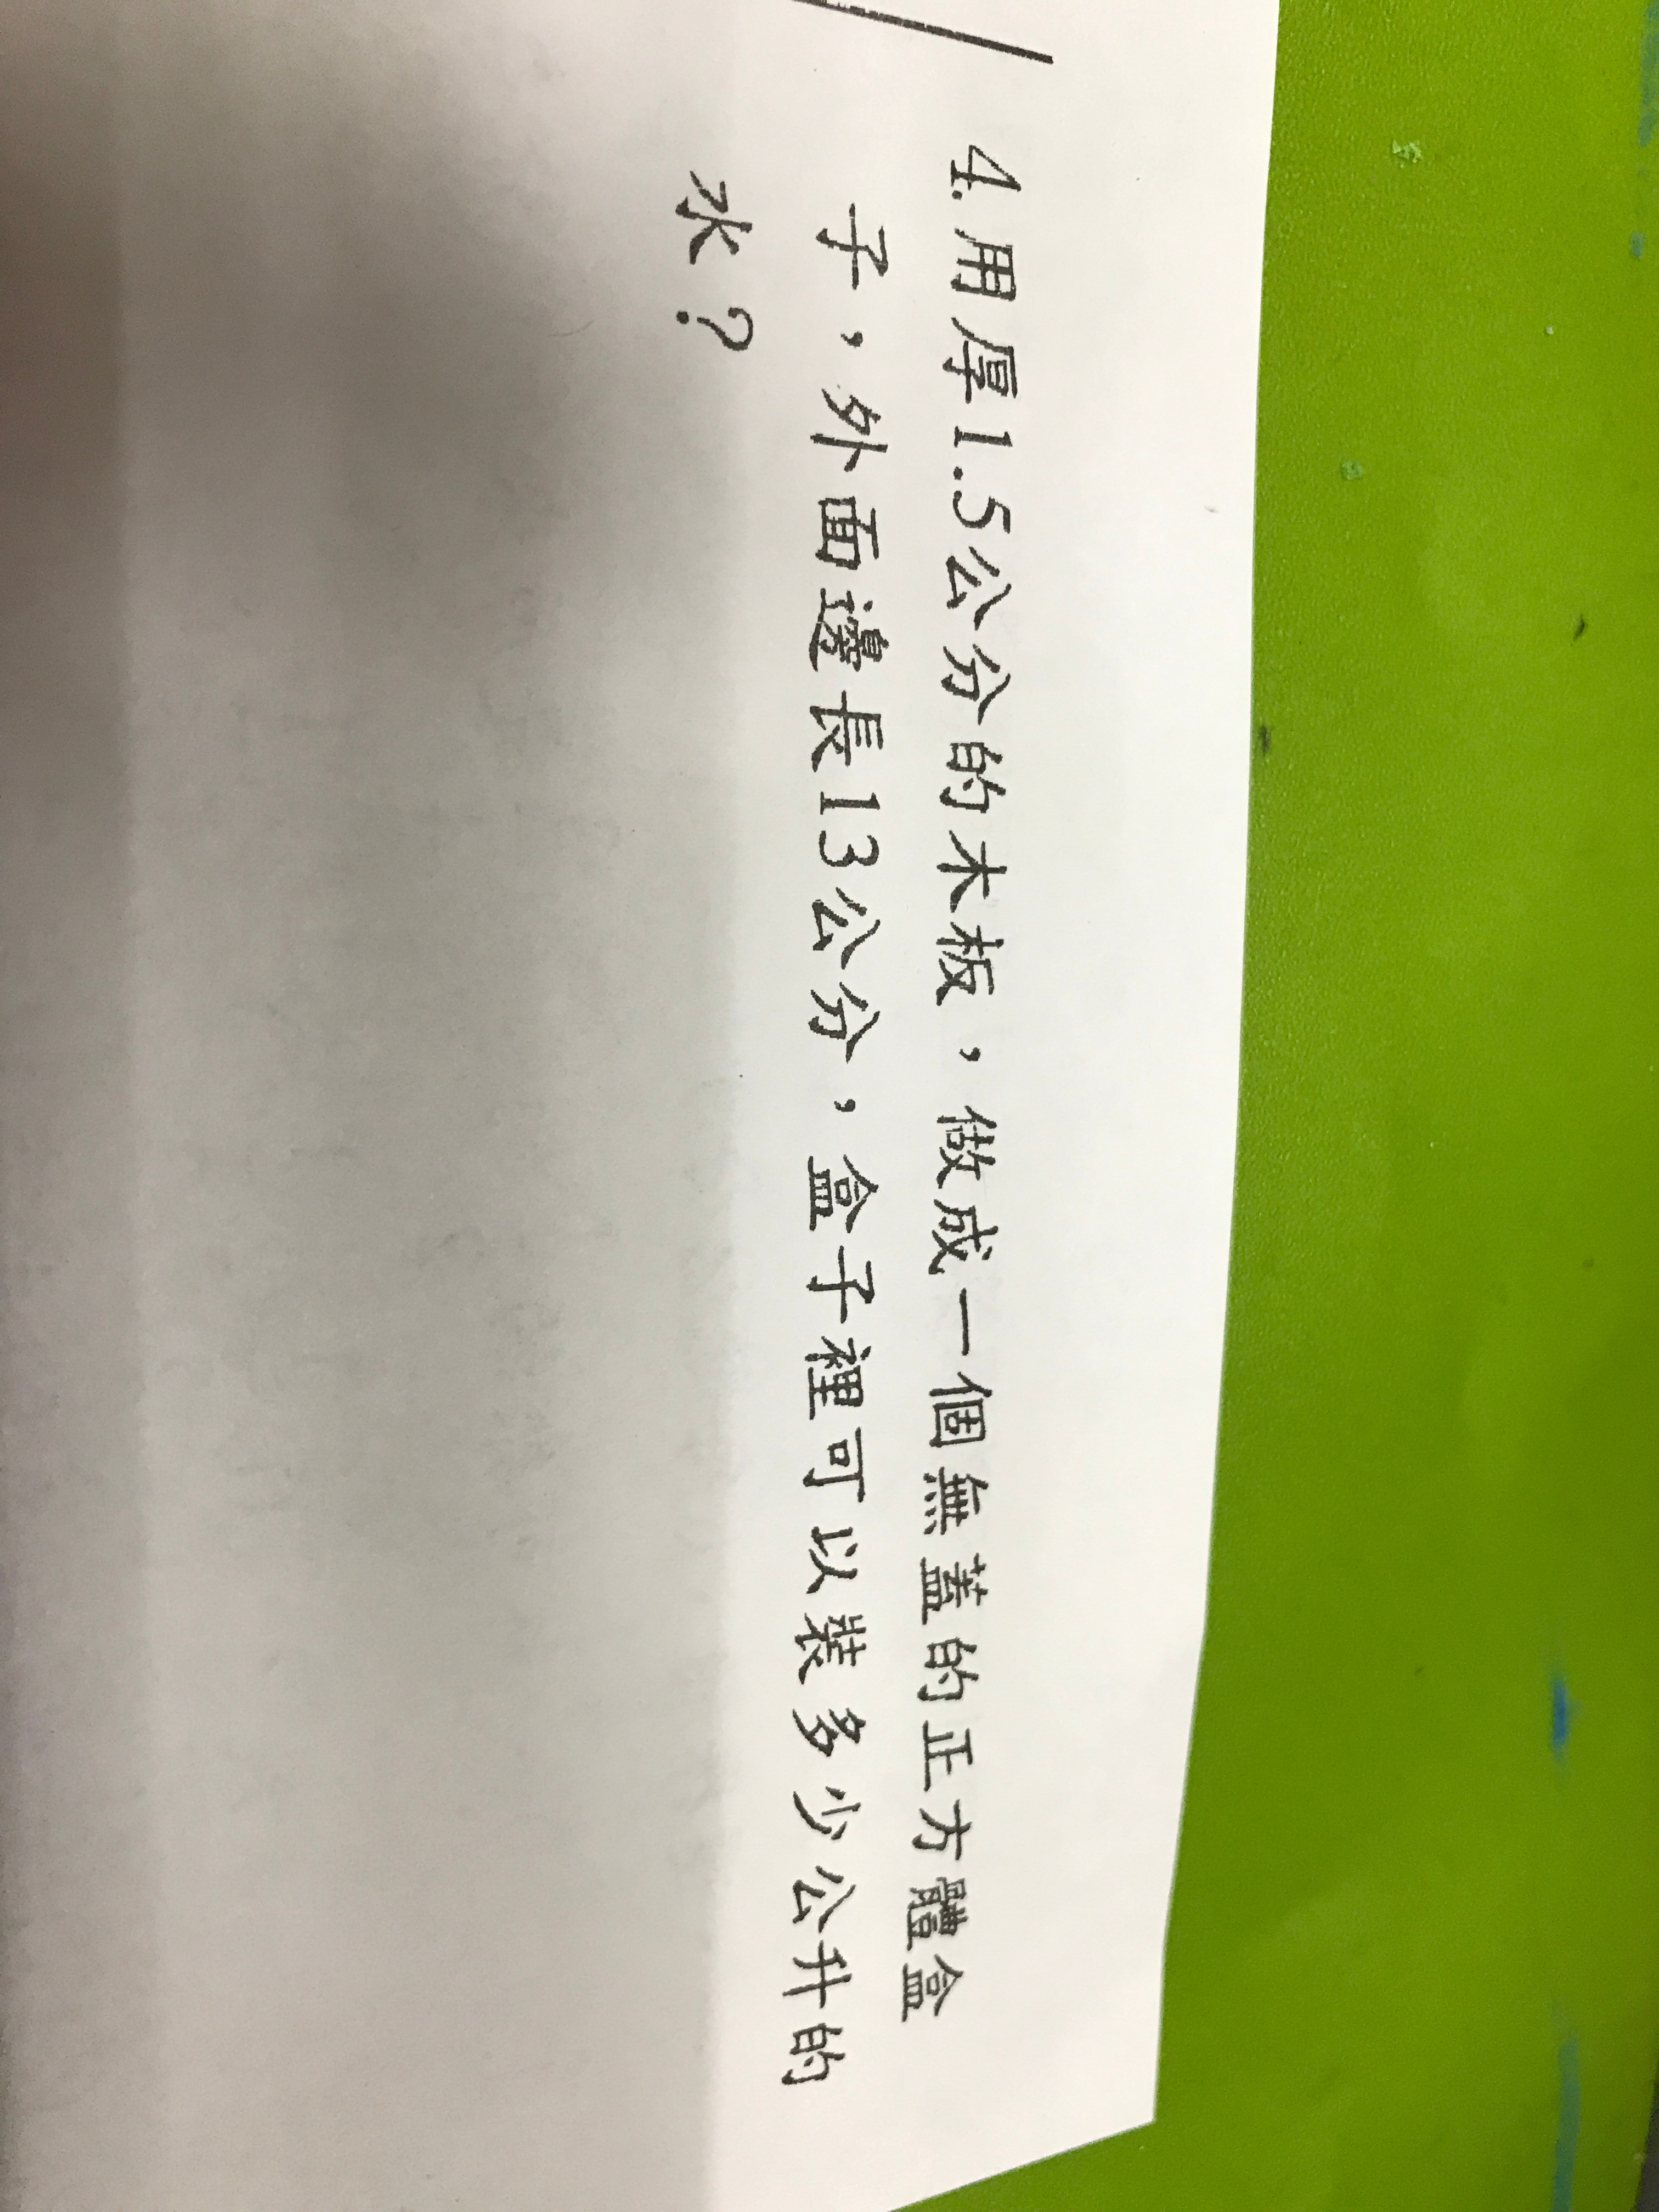 4.用厚1.5公分的木板，做成一個無蓋的正方體盒
子，外面邊長13公分，盒子裡可以裝多少公升的
水？